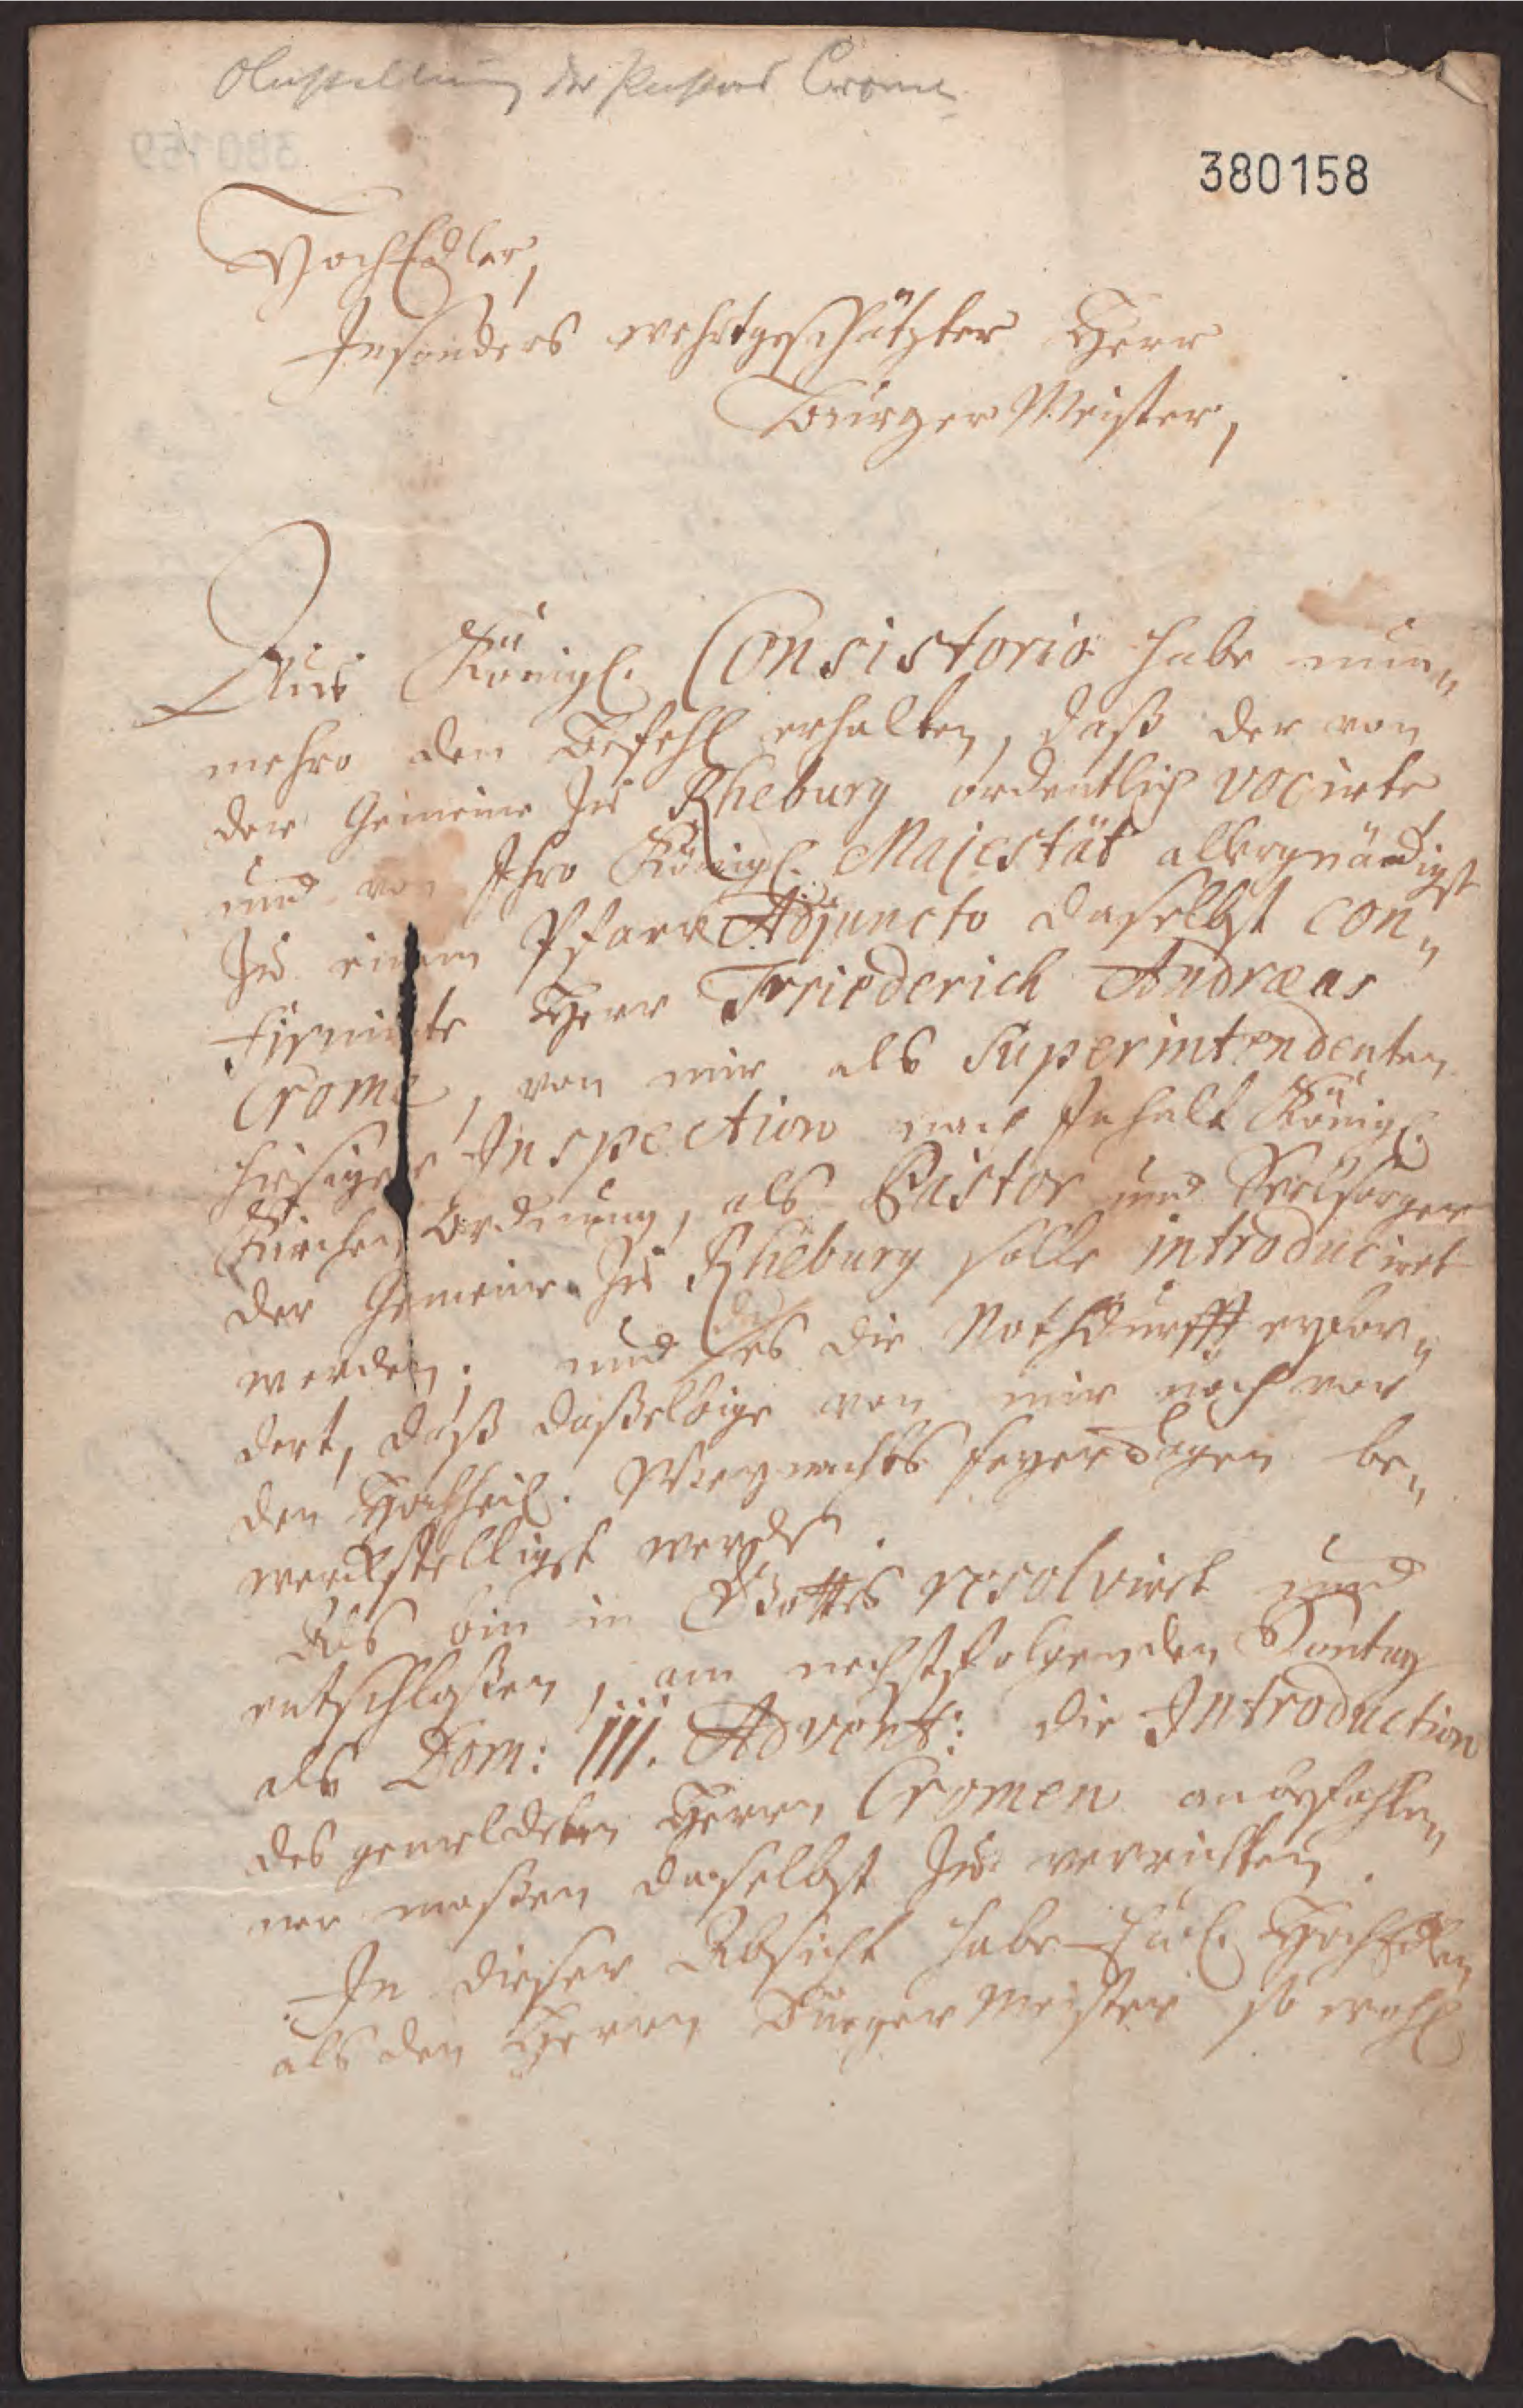 Anstellung des Pastors Crome
380158
HochEdler,
Insonders wehrtgeschätzter Herr
BürgerMeister,
Aus Königl. Consistorio habe nun„
mehro den Befehl erhalten, daß der von
der Gemeine zu Rheburg ordentlich vocirte
und von Ihro Königl. Majestät allergnädigst
zu einem Pfarr Adjuncto daselbst con„
firmirte Herr Friederich Andreas
Crome, von mir als Superintendenten
hiesiger Inspection nach Inhalt Königl.
Kirchen Ordnung, als Pastor und Seelsorger
der Gemeine zu Rheburg solle introduciret
werden; und da es die Nothdurfft erfor„
dert, daß daßelbige von mir noch vor
den Hochheil. Weynachts feyerdagen be„
werckstelligst werde.
Als bin in Gottes resolvirt und
entschloßen, am nechstfolgenden Sontag
als Dom: III. Advent: die Introduction
des gemeldeten Herrn Cromen anbefohle„
ner maßen daselbst zu verrichten.
In dieser Absicht habe HochEdlen
als den Herrn BürgerMeister so wohl